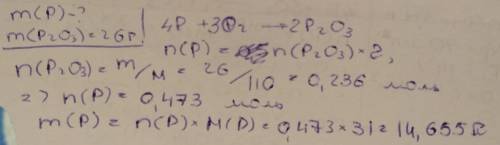 m(P)-?
m(P2O3)=26г
4P + 3O2 → 2P2O3
n(P) = n(P2O3)×2,
n(P2O3) = m/M = 26/110 = 0,236 моль
=> n(P) = 0,473 моль
m(P) = n(P) × M(P) = 0,473 × 31 = 14,655 г